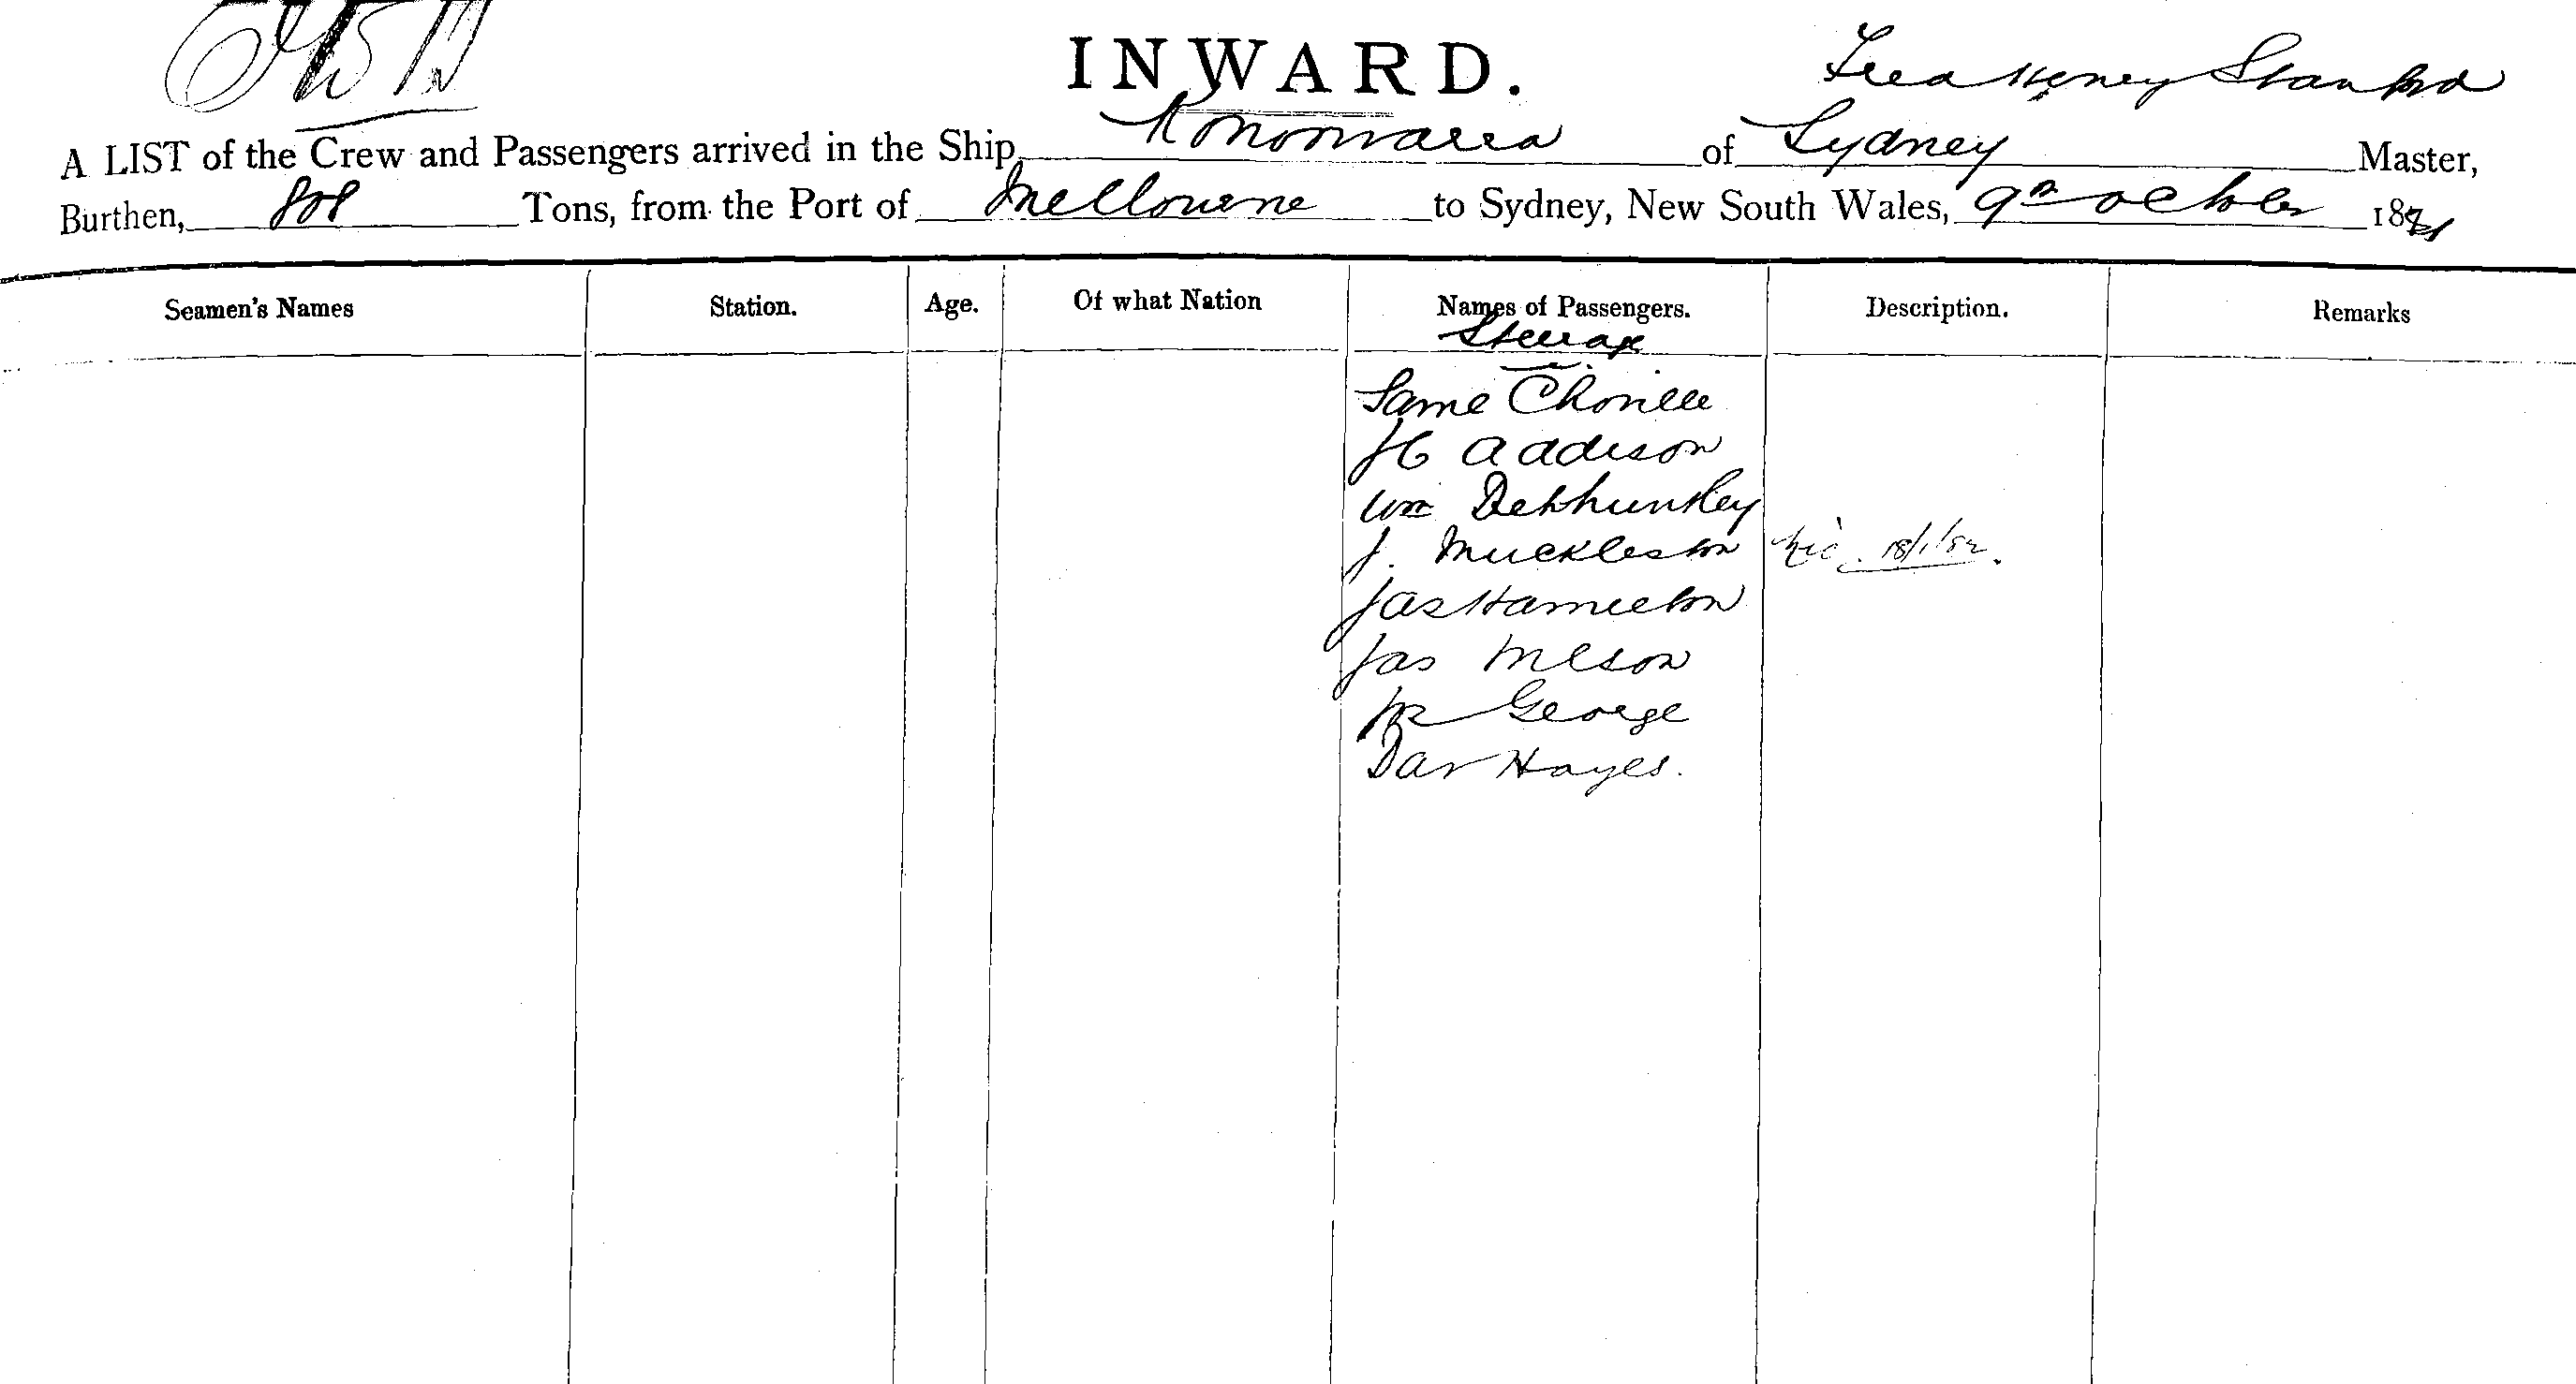 INWARD.
Stanford
A LIST of the Crew and Passengers arrived in the Ship, Konoowarra of Sydney Master,
Burthen, 808 Tons, from the Port of Melbourne to Sydney, New South Wales, 9th October 1881
Seamen's Names Station. Age. Of what Nation Names of Passengers. Description. Remarks
Steerage
Same
H Addison
Wm
J. Muckleston 18/1/82.
Jas Hamilton
Jas
Mr George
Hayes.